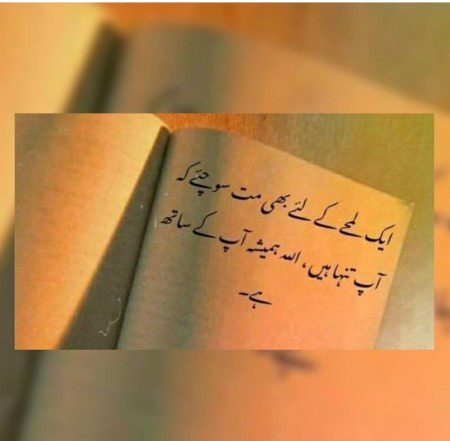 ایک لمحے کے لئے بھی مت سوچئے کہ
آپ تنہا ہیں، اللہ ہمیشہ آپ کے ساتھ
ہے۔